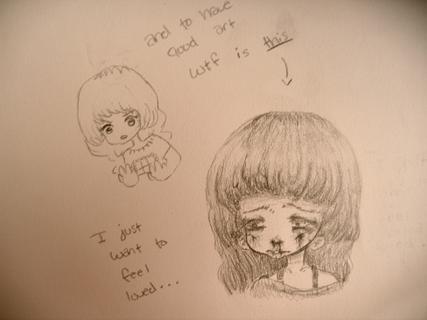 and to have
good art
wtf is this
I just
want to
feel
loved...